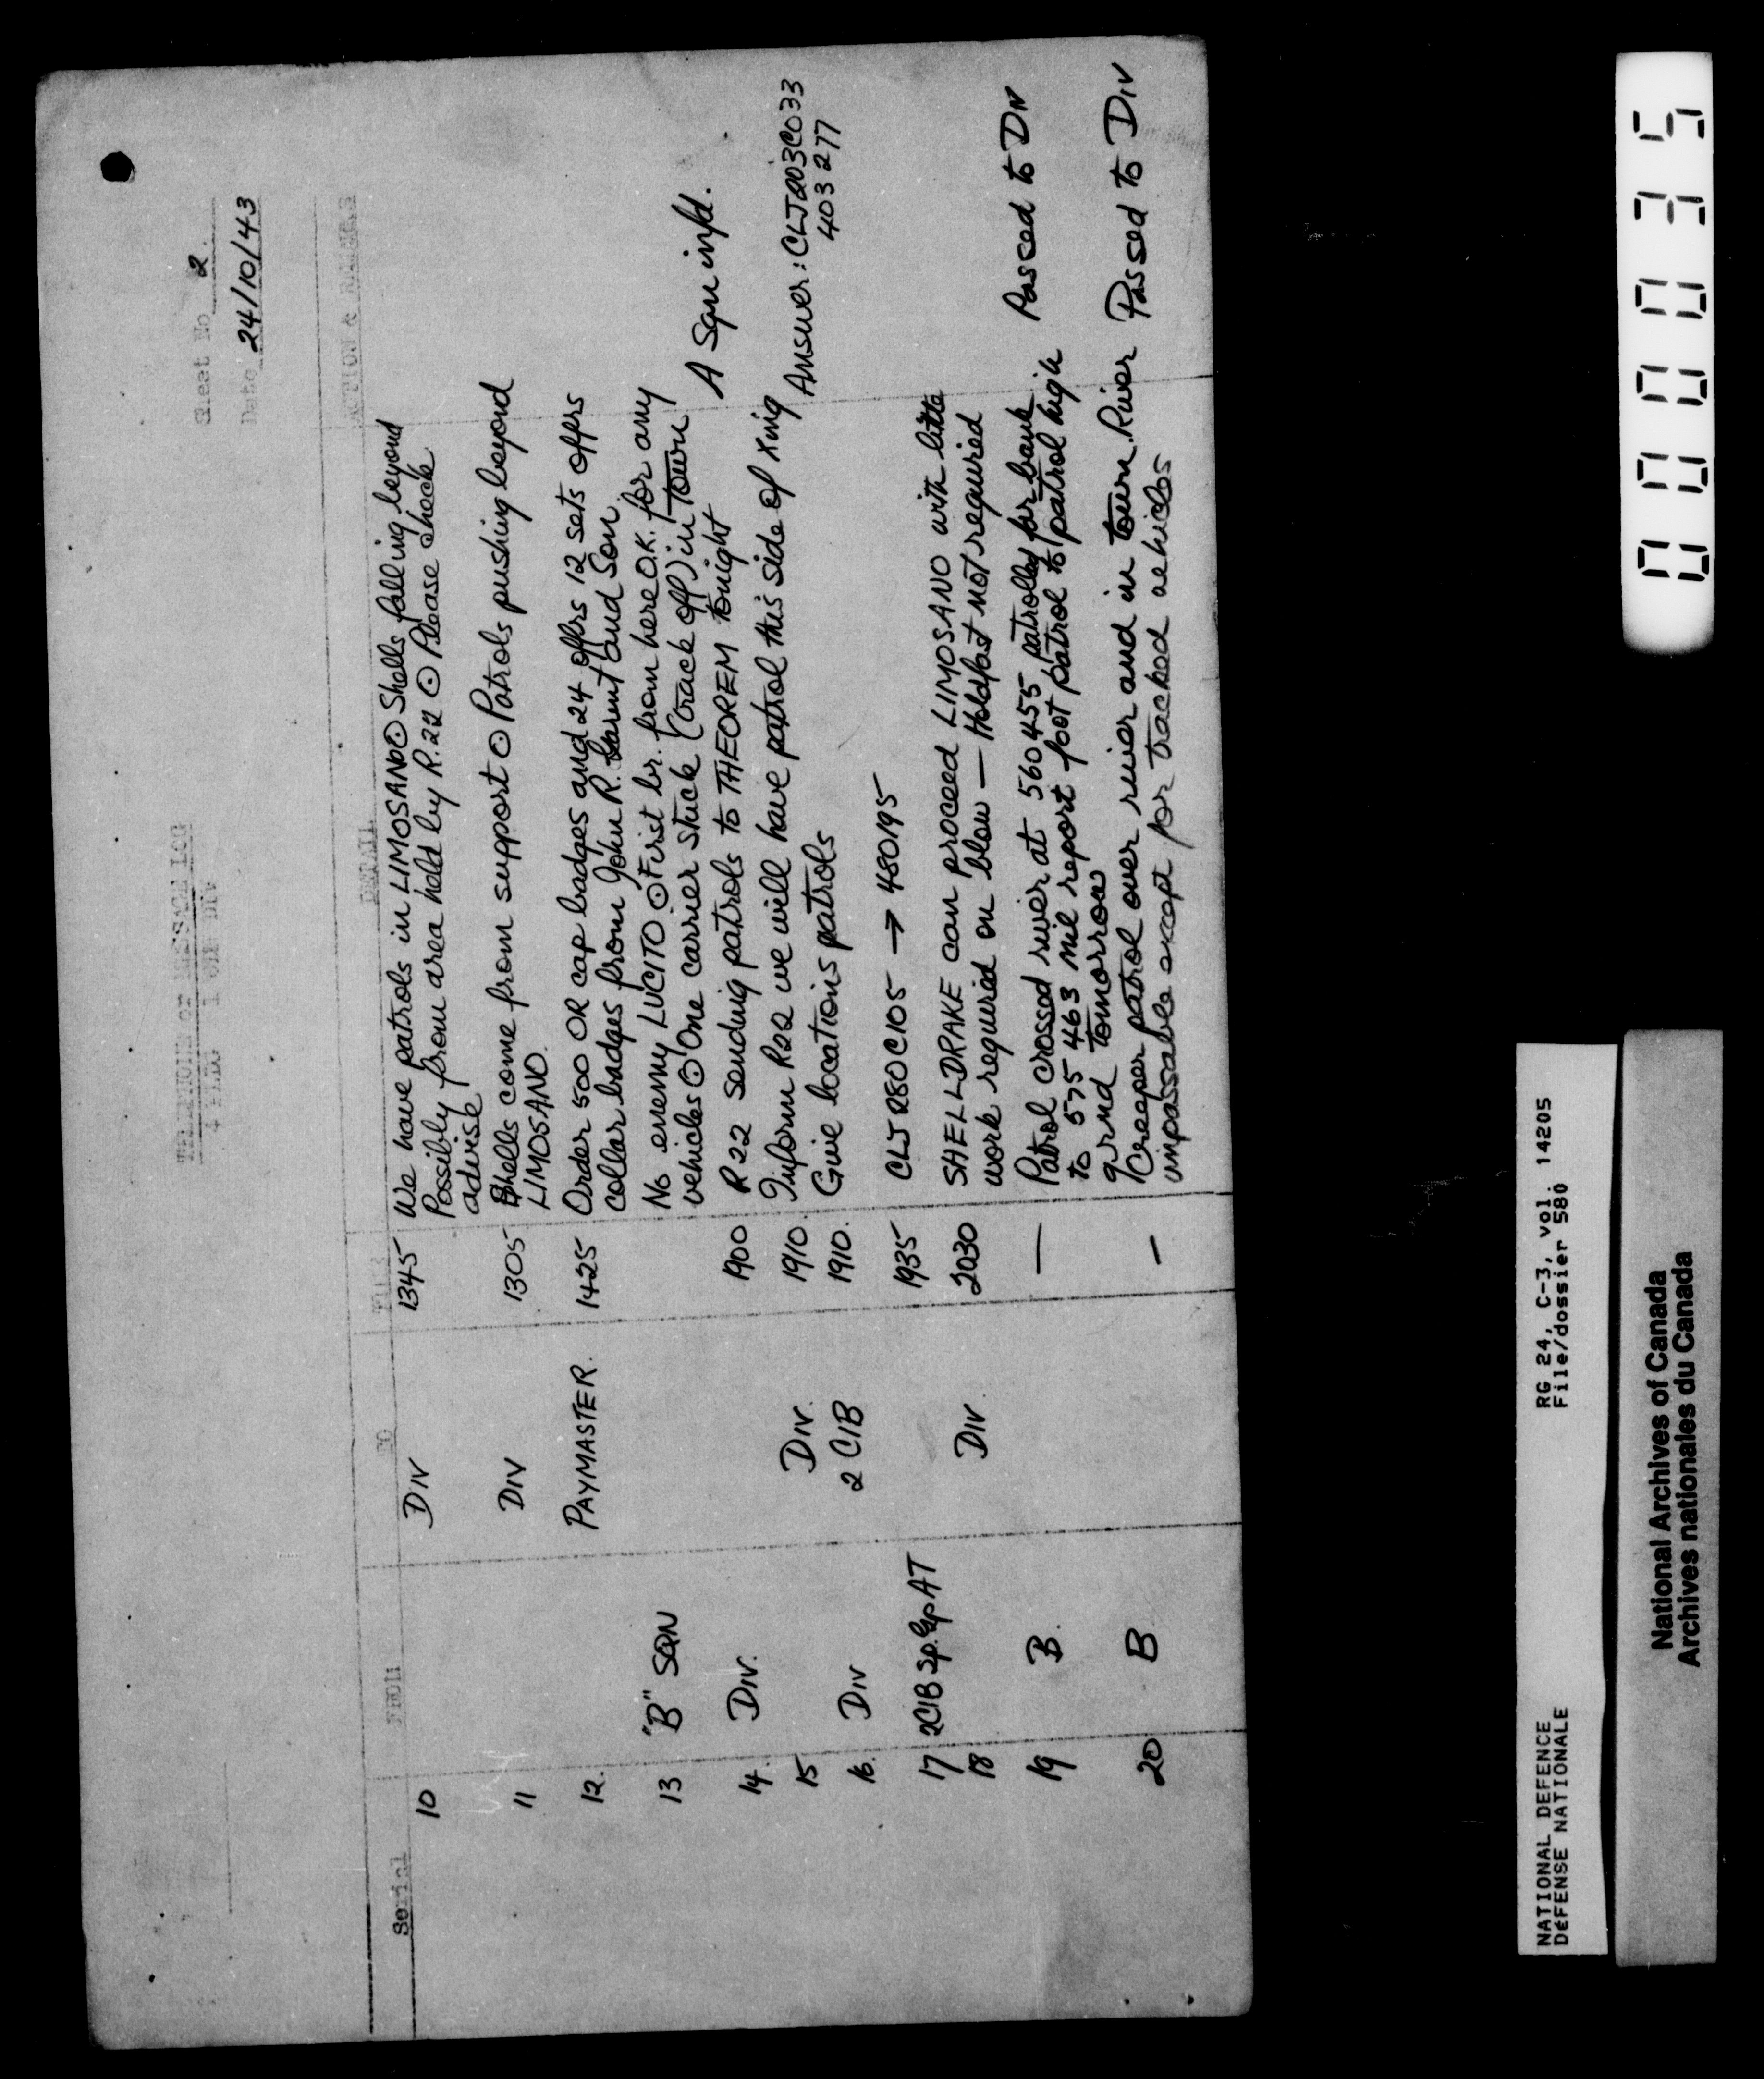 TELEPHONE or MESSAGE LOG
Sheet No 2.
Date 24/10/43
Serial FROM TO TIME DETAIL ACTION & REMARKS
10 DIV 1345 We have patrols in LIMOSANO ⊙ Shells falling beyond
Possibly from area held by R.22 ⊙ Please check
advise
11 DIV 1305 Shells come from support ⊙ Patrols pushing beyond
LIMOSANO.
12. PAYMASTER. 1425 Order 500 OR cap badges and 24 offrs 12 sets offrs
collar badges from John R. Parent and Son.
13 "B" SQN No enemy LUCITO ⊙ First br. from here O.K. for any
vehicles ⊙ One carrier stuck (track off) in town
14. DIV. 1900 R 22 sending patrols to THEOREM tonight A Sqn infd.
15 DIV. 1910. Inform R22 we will have patrol this side of Xing
16. DIV 2 CIB 1910. Give locations patrols Answer: CLJ203C033
403 277
17 2CIB Sp. Gp AT 1935 CLJ 280C105 → 480195
18 DIV 2030 SHELLDRAKE can proceed LIMOSANO with little
work required on blow — Holdfast not required
19 B. — Patrol crossed river at 560455 patrolled far bank Passed to DIV
to 575 463 nil report foot patrol to patrol high
grnd tomorrow
20 B — Creeper patrol over river and in town. River Passed to DIV
impassable except for tracked vehicles
00035
NATIONAL DEFENCE RG 24, C-3, vol. 14205
DéFENSE NATIONALE File/dossier 580
National Archives of Canada
Archives nationales du Canada